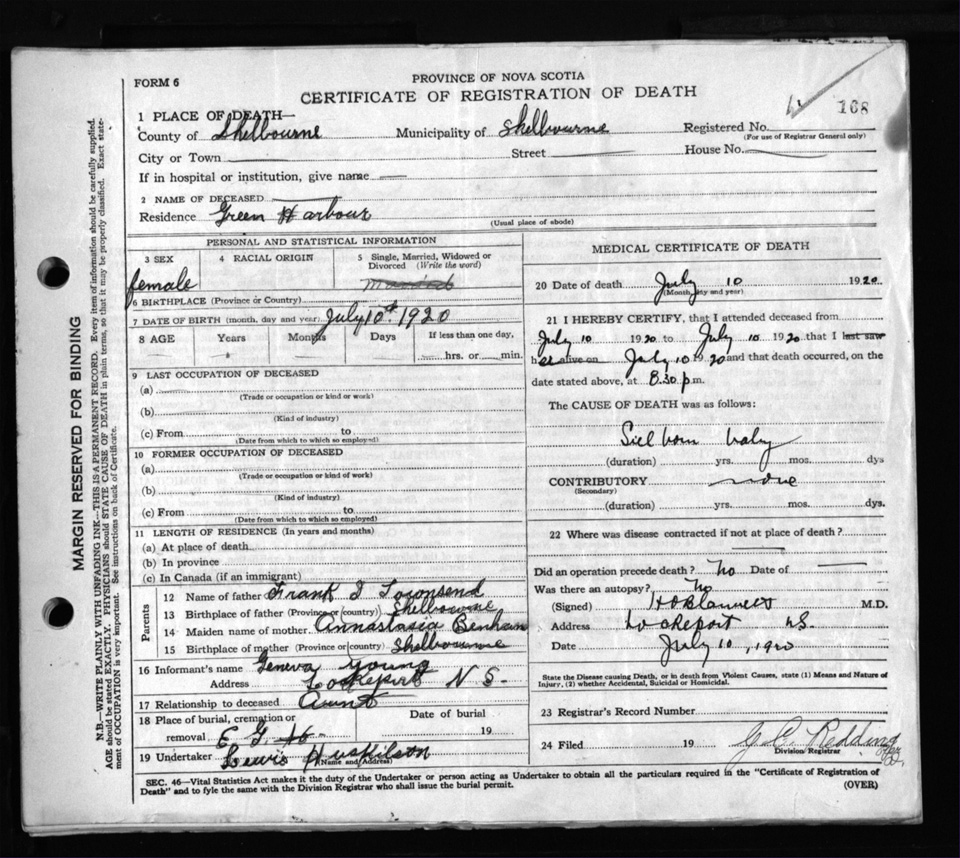 FORM 6
PROVINCE OF NOVA SCOTIA
CERTIFICATE OF REGISTRATION OF DEATH
168
1 PLACE OF DEATH—
County of Shelbourne Municipality of Shelbourne Registered No.
(For use of Registrar General only)
City or Town Street House No.
If in hospital or institution, give name
2 NAME OF DECEASED
Residence Green Harbour
(Usual place of abode)
PERSONAL AND STATISTICAL INFORMATION
3 SEX 4 RACIAL ORIGIN 5 Single, Married, Widowed or Divorced (Write the word)
female
6 BIRTHPLACE (Province or Country)
7 DATE OF BIRTH (month, day and year) July 10th 1920
8 AGE Years Months Days If less than one day,
hrs. or min.
9 LAST OCCUPATION OF DECEASED
(a)
(Trade or occupation or kind or work)
(b)
(Kind of industry)
(c) From to
(Date from which to which so employed)
10 FORMER OCCUPATION OF DECEASED
(a)
(Trade or occupation or kind of work)
(b)
(Kind of industry)
(c) From to
(Date from which to which so employed)
11 LENGTH OF RESIDENCE (In years and months)
(a) At place of death
(b) In province
(c) In Canada (if an immigrant)
Parents
12 Name of father Frank I Townsend
13 Birthplace of father (Province or country) Shelbourne
14 Maiden name of mother Annastasia Benham
15 Birthplace of mother (Province or country) Shelbourne
16 Informant's name Geneva Young
Address Lockeport N S.
17 Relationship to deceased Aunt
18 Place of burial, cremation or removal E G Date of burial 19
19 Undertaker Lewis Huskilson
(Name and Address)
MEDICAL CERTIFICATE OF DEATH
20 Date of death July 10 1920
(Month, day and year)
21 I HEREBY CERTIFY, that I attended deceased from
July 10 1920 to July 10 1920 that I last saw
her alive on July 10 1920 and that death occurred, on the
date stated above, at 8.30 p.m.
The CAUSE OF DEATH was as follows:
Siel born baby
(duration) yrs. mos. dys
CONTRIBUTORY none
(Secondary)
(duration) yrs. mos. dys.
22 Where was disease contracted if not at place of death?
Did an operation precede death? No Date of
Was there an autopsy? No
(Signed) M.D.
Address Lockeport NS.
Date July 10, 1920
State the Disease causing Death, or in death from Violent Causes, state (1) Means and Nature of
Injury, (2) whether Accidental, Suicidal or Homicidal.
23 Registrar's Record Number
24 Filed 19 G. C. Redding
Division Registrar
SEC. 46—Vital Statistics Act makes it the duty of the Undertaker or person acting as Undertaker to obtain all the particulars required in the "Certificate of Registration of
Death" and to fyle the same with the Division Registrar who shall issue the burial permit. (OVER)
MARGIN RESERVED FOR BINDING
N.B.—WRITE PLAINLY WITH UNFADING INK—THIS IS A PERMANENT RECORD. Every item of information should be carefully supplied.
AGE should be stated EXACTLY. PHYSICIANS should STATE CAUSE OF DEATH in plain terms, so that it may be properly classified. Exact state-
ment of OCCUPATION is very important. See instructions on back of Certificate.